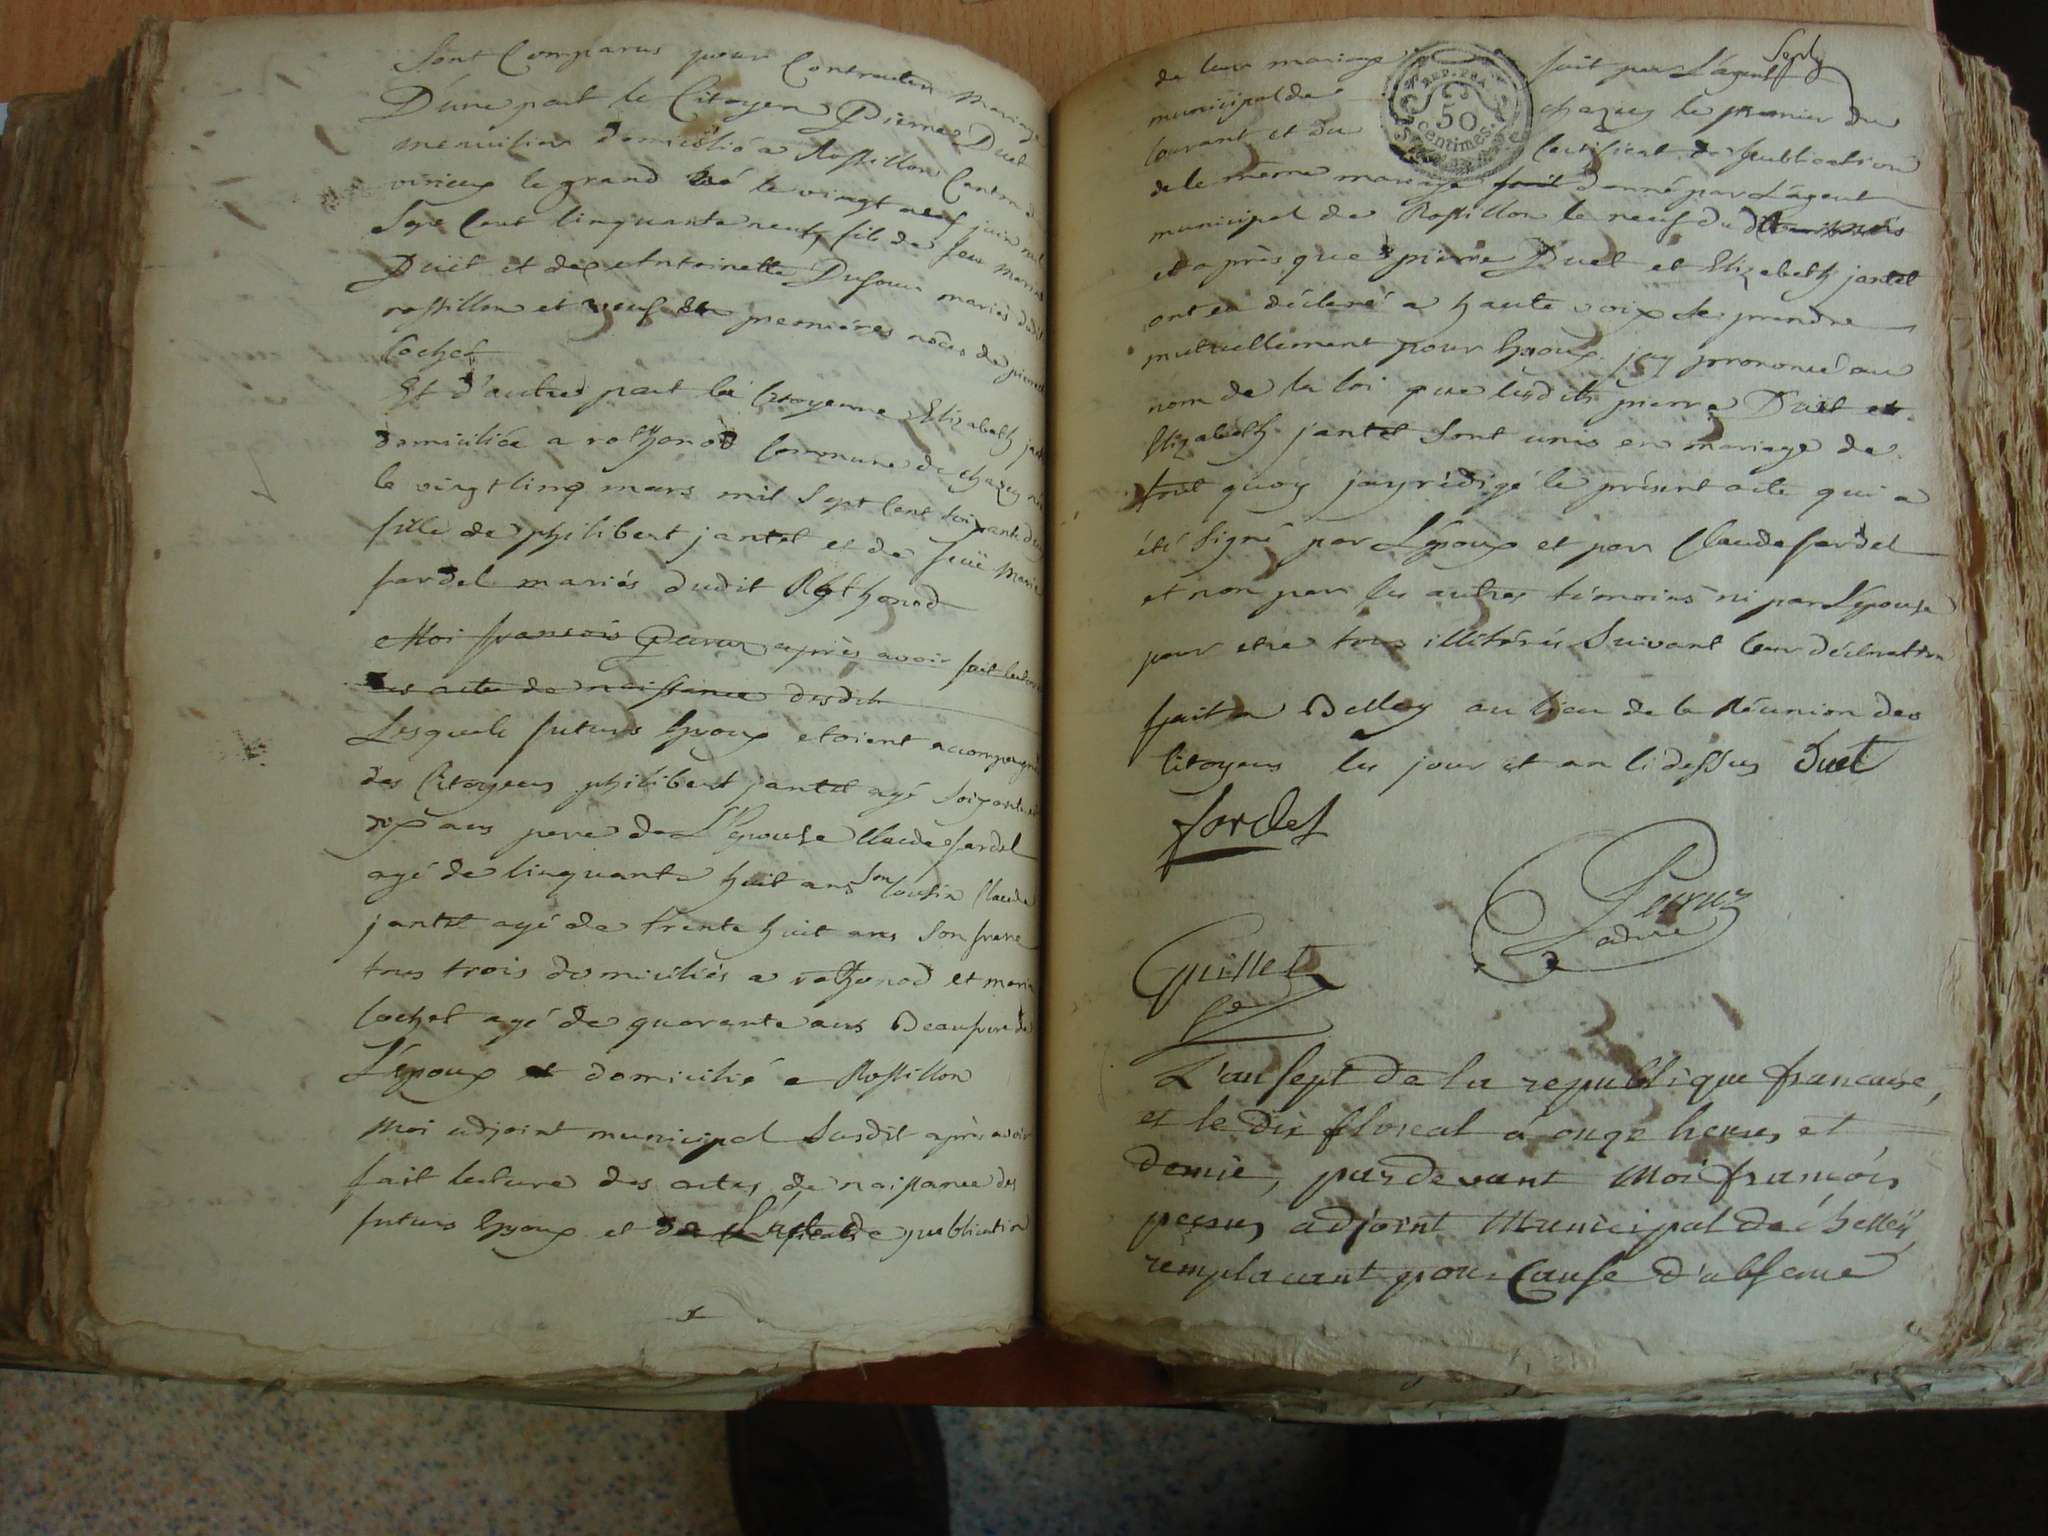 Sont Comparus pour Contracter Mariage
D'une part le Citoyen Pierre Duet
menuisier domicilié a Rossillon Canton de
virieux le grand né le vingt neuf juin mil
Sept Cent Cinquante neuf fils de feu Marin
Duet et de Antoinette Dufour mariés dudit
rossillon et veuf en premières noces de pierrette
Cochet
Et d'autre part la Citoyenne Elizabeth jantet
domiciliée a rothonod Commune de chazey née
le vingt cinq mars mil Sept Cent Soixante deux
fille de philibert jantet et de feue Marie
fardel mariés dudit Rothonod
Moi francois Peruz après avoir fait lecture
des actes de naissance desdits
Lesquels futurs Epoux etoient accompagnés
des Citoyens philibert jantet agé Soixante et
dix ans pere de L'Epouse Claude fardel
agé de Cinquante huit ans son Cousin Claude
jantet agé de trente huit ans Son frere
tous trois domiciliés a rothonod et marin
Cochet agé de quarante ans Beaufrere de
L'époux et domicilié a Rossillon
Moi adjoint municipal Susdit après avoir
fait lecture des actes de naissance des
futurs Epoux et de L'acte de publication
Sept
de leur mariage fait par L'agent
municipal de chazey le premier du
Courant et du Certificat de publication
de le même mariage fait donné par L'agent
municipal de Rossillon le neuf du dit mois
et après que pierre Duet et Elizabeth jantet
ont eu déclaré a haute voix Se prendre
mutuellement pour Epoux. jay prononcé au
nom de la loi que lesdits pierre Duet et
Elizabeth jantet Sont unis en mariage de
tout quoy jay rédigé le présent acte qui a
été Signé par L'époux et par Claude fardel
et non par les autres témoins ni par L'épouse
pour etre tous illitérés Suivant leur déclaration
fait a Belley au lieu de la Réunion des
Citoyens les jour et an Cidessus Duet
fardel
Peruz
adjoint
Guillet
L'an sept de la republique francaise,
et le dix floreal á onze heures et
demie, pardevant Moi francois
peruz adjoint Municipal de Belleÿ,
remplacant pour Cause d'absence
REP. FRA.
50
centimes